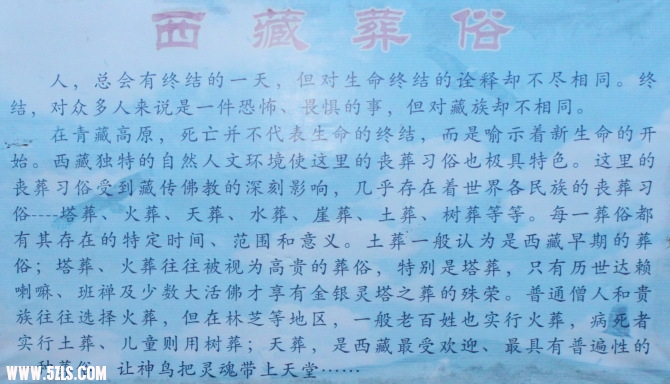 西藏葬俗
人，总会有终结的一天，但对生命终结的诠释却不尽相同。终
结，对众多人来说是一件恐怖、畏惧的事，但对藏族却不相同。
在青藏高原，死亡并不代表生命的终结，而是喻示着新生命的开
始。西藏独特的自然人文环境使这里的丧葬习俗也极具特色。这里的
丧葬习俗受到藏传佛教的深刻影响，几乎存在着世界各民族的丧葬习
俗----塔葬、火葬、天葬、水葬、崖葬、土葬、树葬等等。每一葬俗都
有其存在的特定时间、范围和意义。土葬一般认为是西藏早期的葬
俗；塔葬、火葬往往被视为高贵的葬俗，特别是塔葬，只有历世达赖
喇嘛、班禅及少数大活佛才享有金银灵塔之葬的殊荣。普通僧人和贵
族往往选择火葬，但在林芝等地区，一般老百姓也实行火葬，病死者
实行土葬、儿童则用树葬；天葬，是西藏最受欢迎、最具有普遍性的
一种葬俗，让神鸟把灵魂带上天堂……
WWW.5ZLS.COM